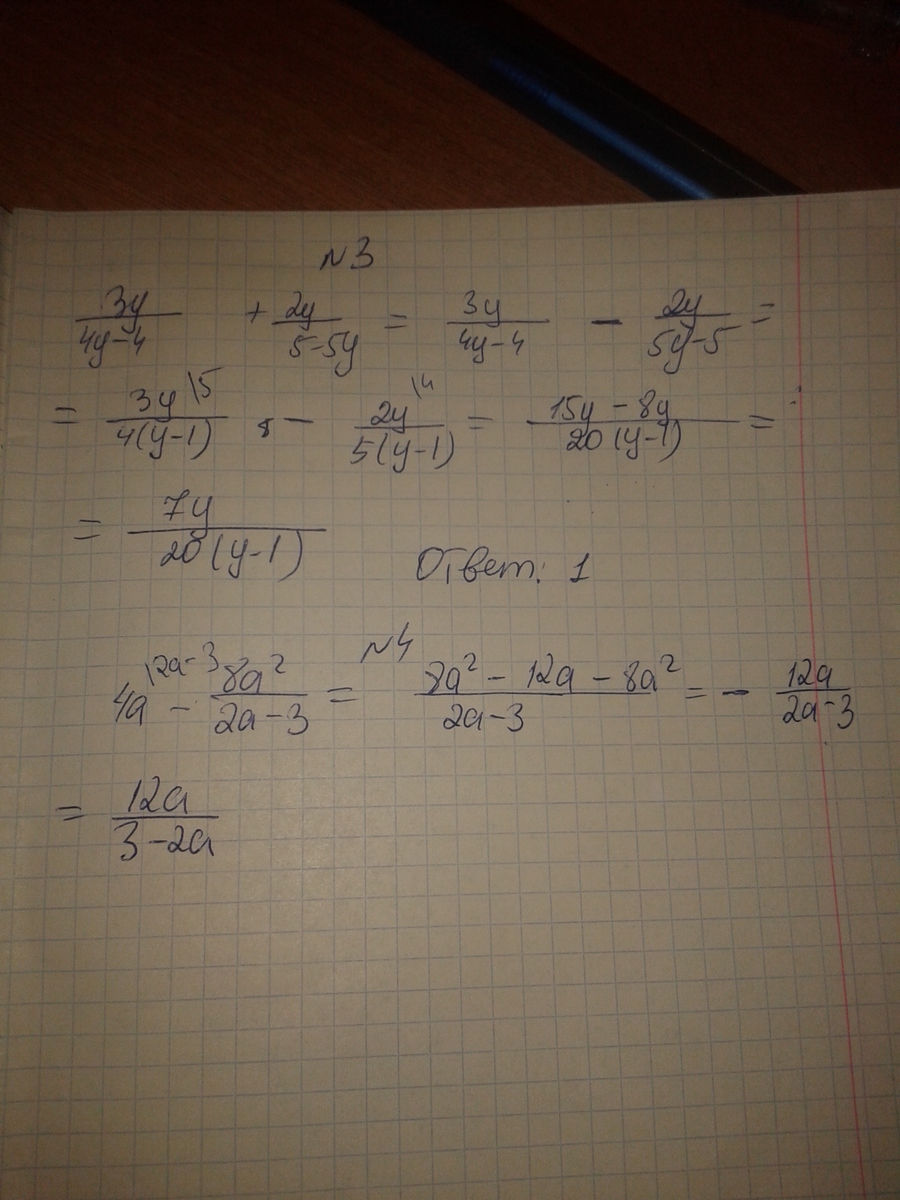 N3
3y/(4y-4) + 2y/(5-5y) = 3y/(4y-4) - 2y/(5y-5) =
= 3y\5/(4(y-1)) - 2y\4/(5(y-1)) = (15y-8y)/(20(y-1)) =
= 7y/(20(y-1)) Ответ: 1
N4
4a\2a-3 - 8a²/(2a-3) = (8a²-12a-8a²)/(2a-3) = - 12a/(2a-3)
= 12a/(3-2a)